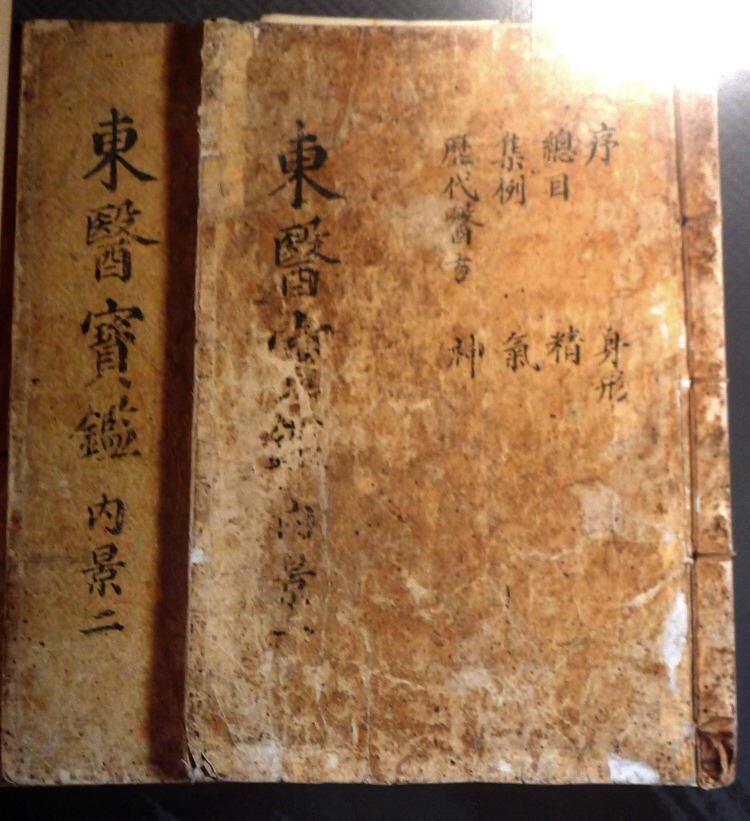 序
總目
集例
歷代醫方
身形
精
氣
神
東醫寶鑑 内景一
東醫寶鑑 内景二